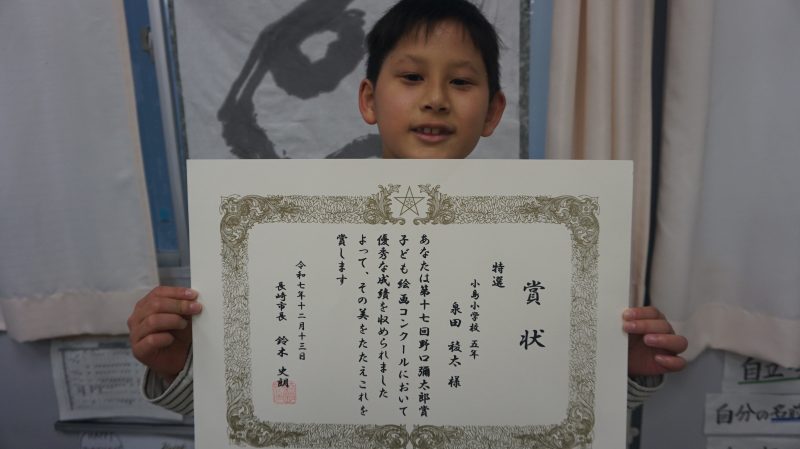 賞状
特選
小島小学校 五年
泉田 稜太 様
あなたは第十七回野口彌太郎賞
子ども絵画コンクールにおいて
優秀な成績を収められました
よって、その美をたたえこれを
賞します
令和七年十二月十三日
長崎市長 鈴木 史朗
自立
自分の